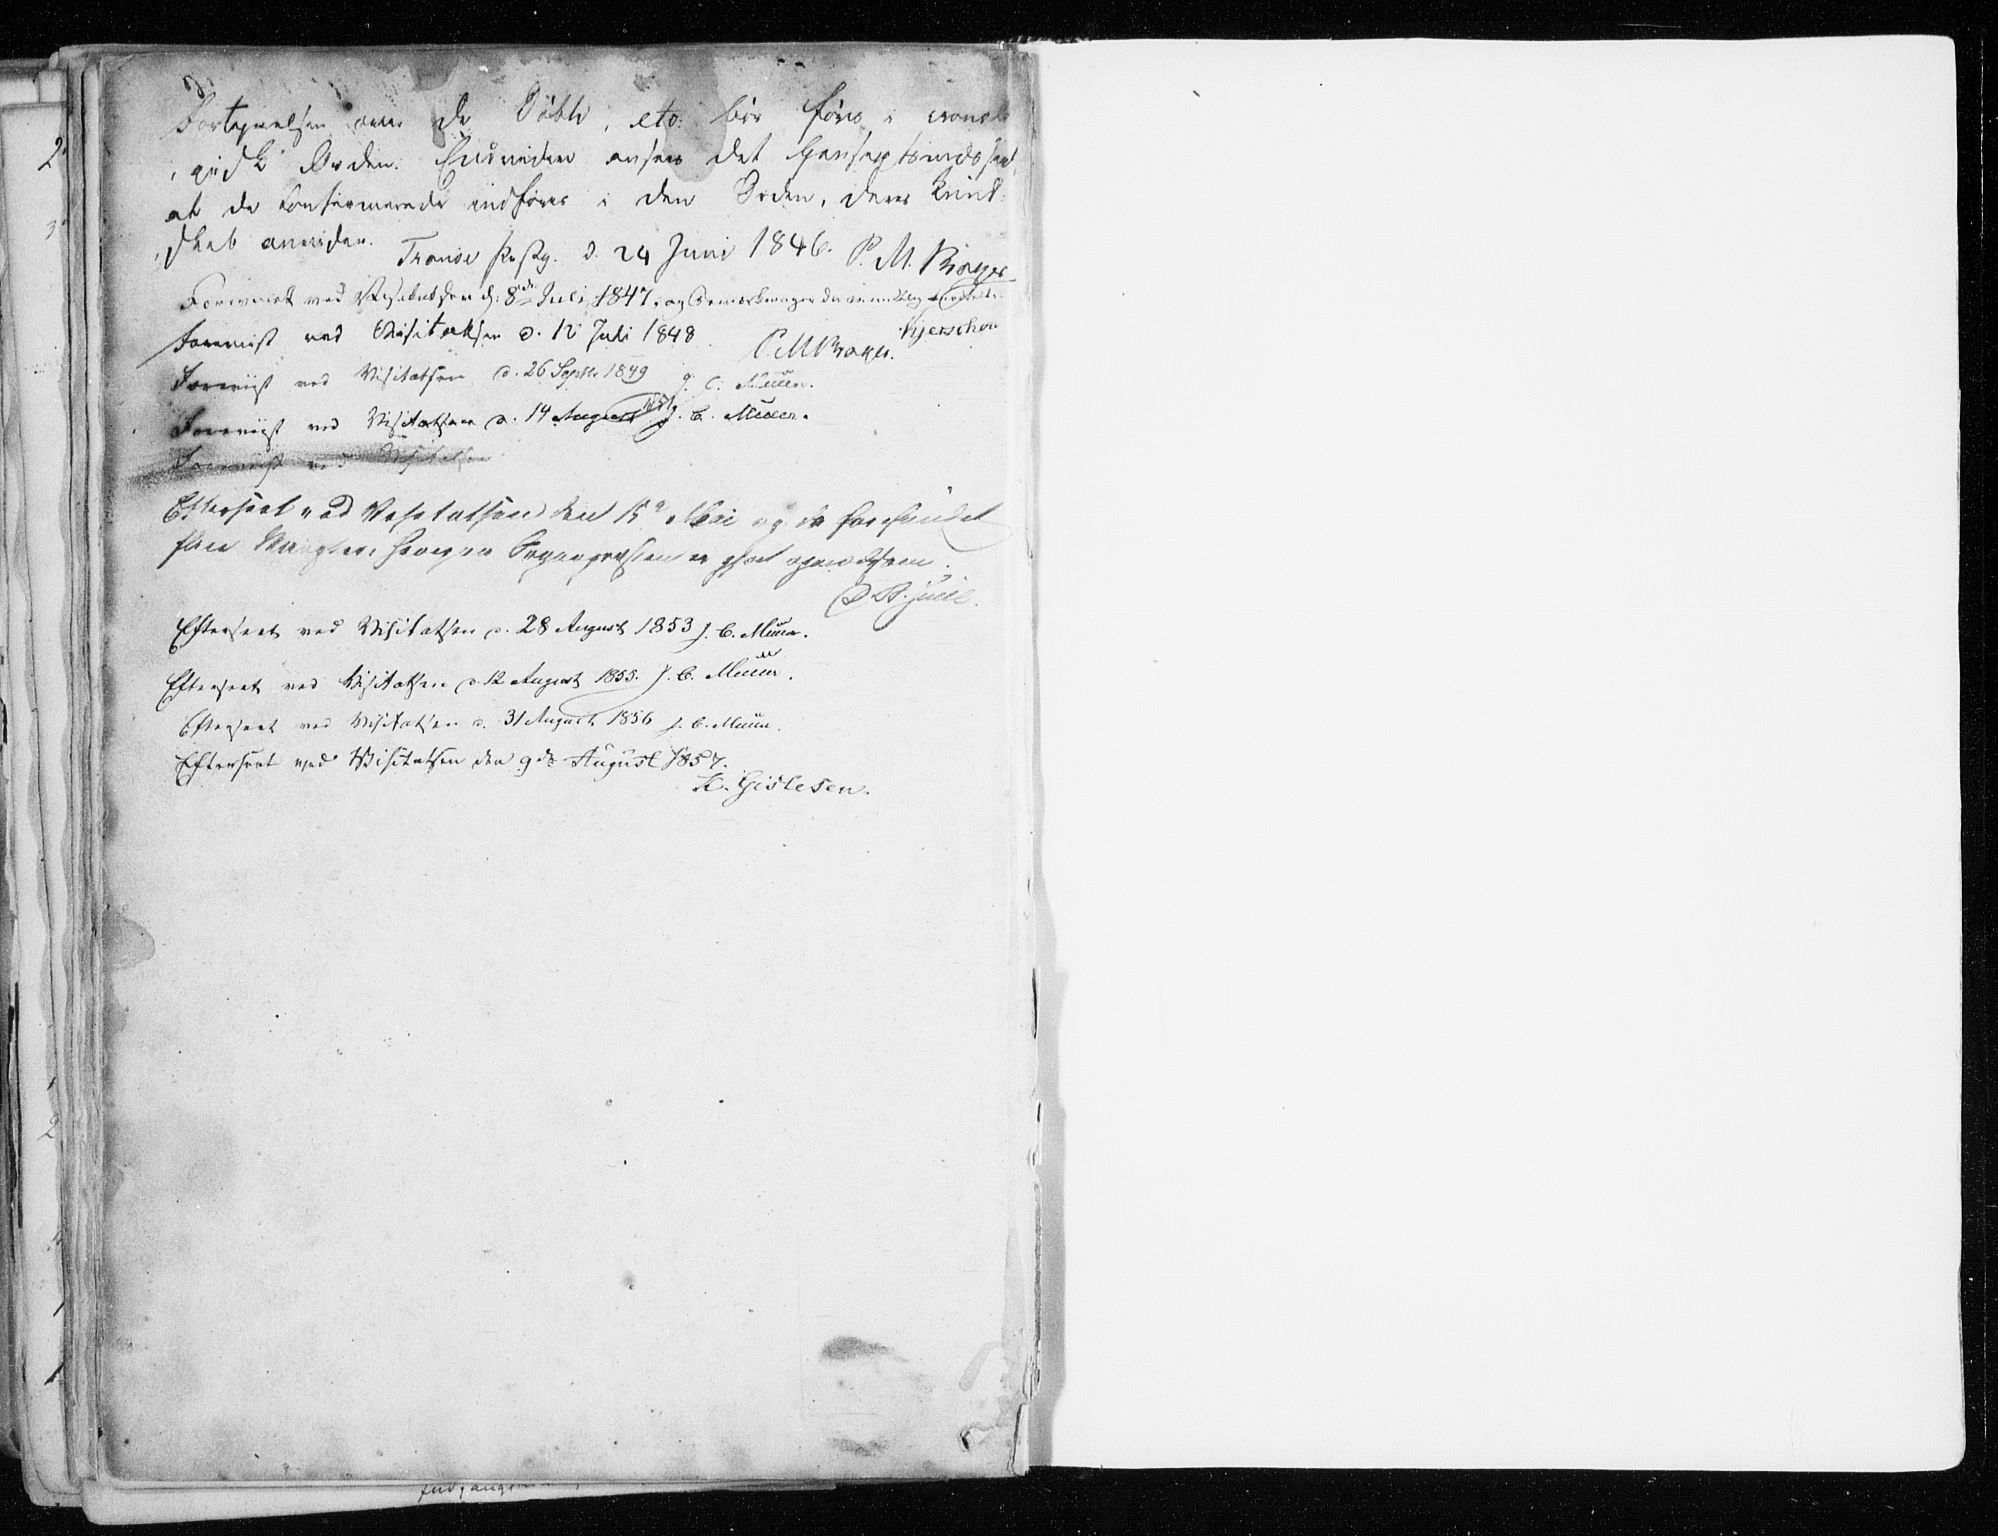 Fortegnelsen over de Döbte, etc: bör föres i cronol
ogisk Orden. Endvidere ansees det hensigtsmæssigt,
at de Confirmerede indföres i den Orden, deres Kund-
skab anviser.
Tranöe Præstg. d. 24 Juni 1846. P. M. Krøger
Foreviist ved Visitatsen d: 8de Juli 1847, og Bemærkninger
Kjerschou
Foreviist ved Visitatsen d. 12 Juli 1848
Foreviist ved Visitatsen d. 26 Septbr 1849 J. C. Müller.
Foreviist ved Visitatsen d. 14 August 1851 J. C. Müller.
Foreviist ved Visitatsen
Efterseet ved Visitatsen den 15 Mai og da forefundet
flere Mangler, hvorpaa Sognepræsten er gjort opmærksom.
Juell.
Efterseet ved Visitatsen d. 28 August 1853 J. C. Müller.
Efterseet ved Visitatsen d. 12 August 1855. J. C. Müller.
Efterseet ved Visitatsen d. 31 August 1856 J. C. Müller.
Efterseet ved Visitatsen den 9de August 1857.
K. Gislesen.